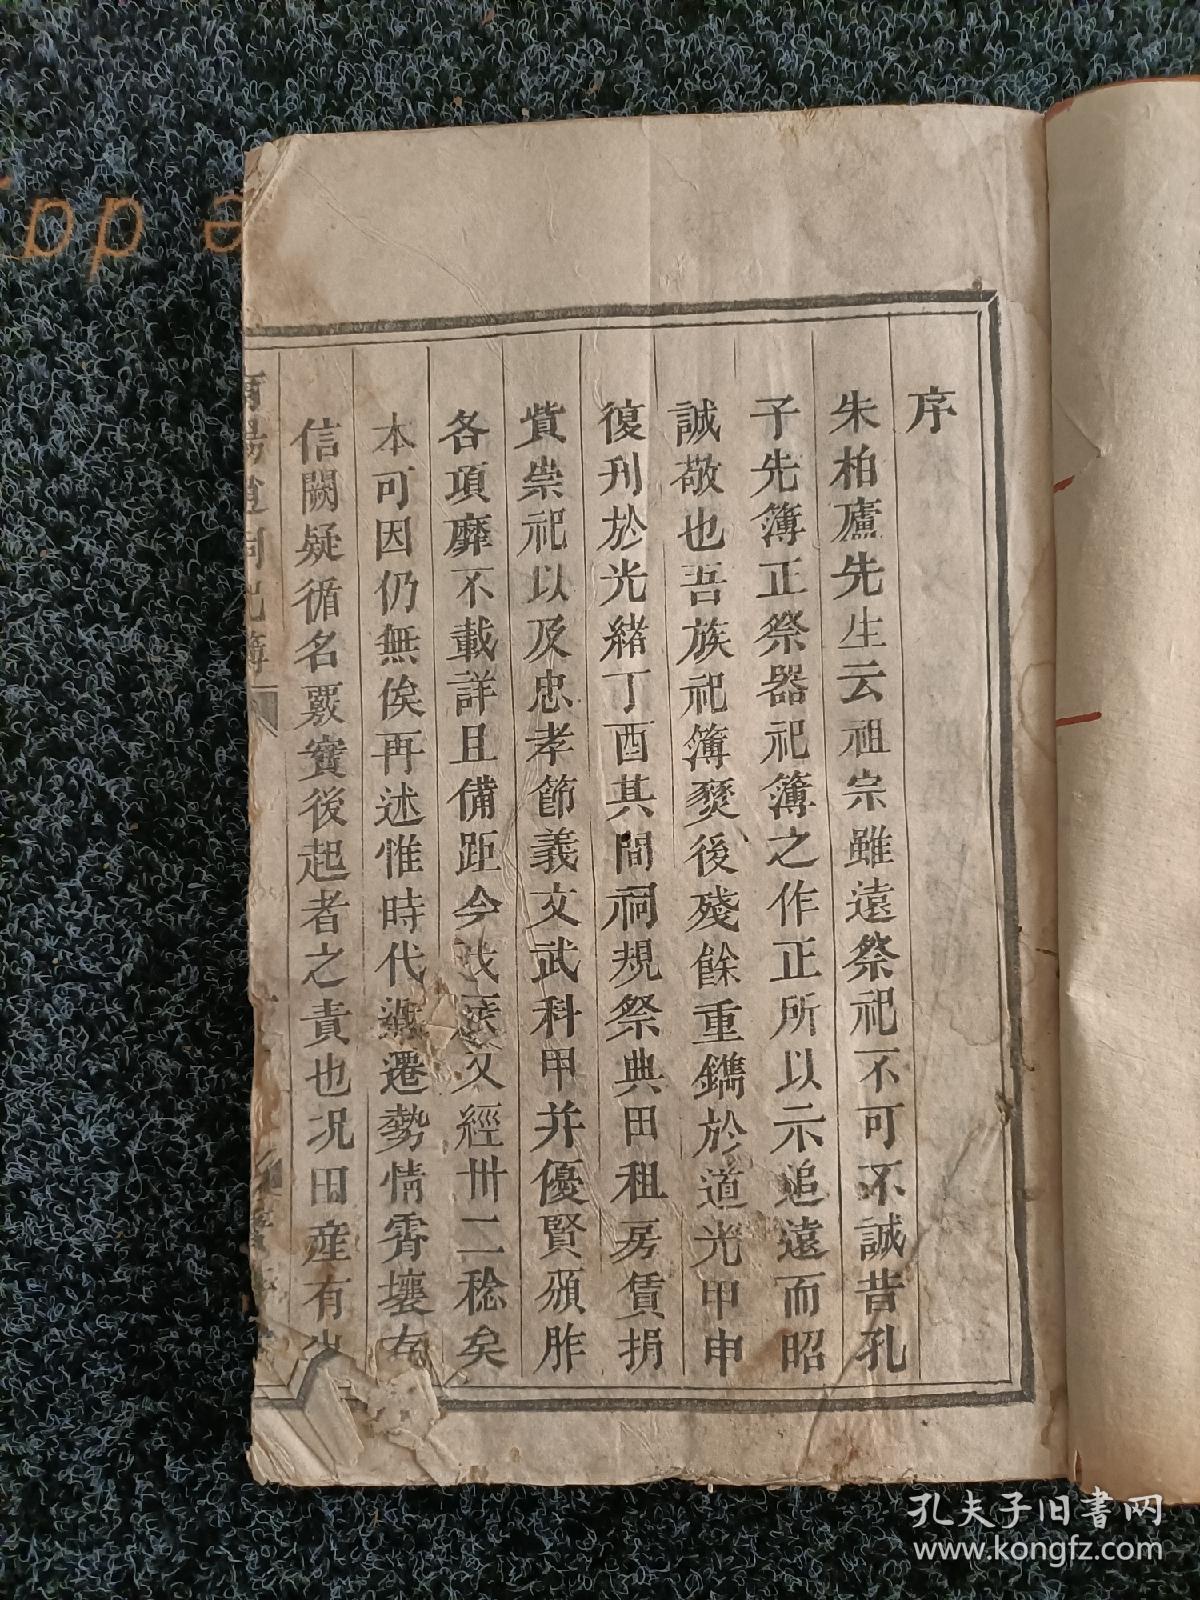 序
朱柏廬先生云祖宗雖遠祭祀不可不誠昔孔
子先簿正祭器祀簿之作正所以示追遠而昭
誠敬也吾族祀簿燹後殘餘重鐫於道光甲申
復刋於光緒丁酉其間祠規祭典田租房賃捐
貲崇祀以及忠孝節義文武科甲并優賢頒胙
各項靡不載詳且備距今又經卅二稔矣
本可因仍無俟再述惟時代遷勢情霄壤存
信闕疑循名覈實後起者之責也况田産有
祠祀簿
孔夫子旧書网
www.kongfz.com